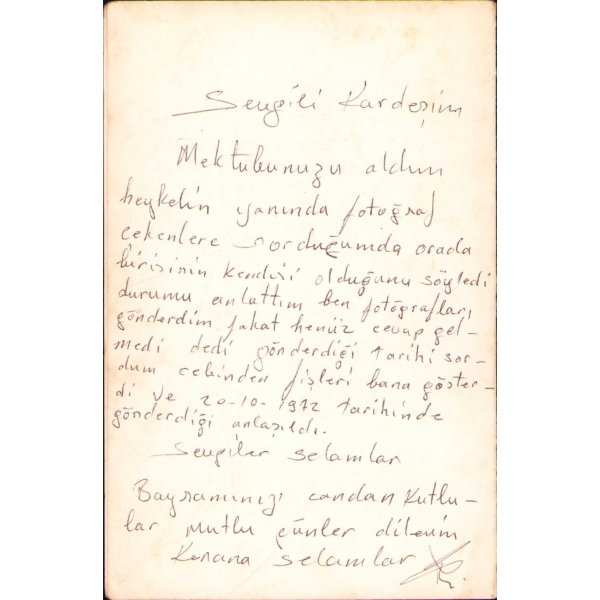 Sevgili Kardeşim
Mektubunuzu aldım
heykelin yanında fotoğraf
çekenlere sorduğumda orada
birisinin kendisi olduğunu söyledi
durumu anlattım ben fotoğrafları
gönderdim fakat henüz cevap gel-
medi dedi gönderdiği tarihi sor-
dum cebinden fişleri bana göster-
di ve 20-10-1972 tarihinde
gönderdiği anlaşıldı.
Sevgiler selamlar
Bayramınızı candan kutlu-
lar mutlu günler dilerim
Kenana selamlar